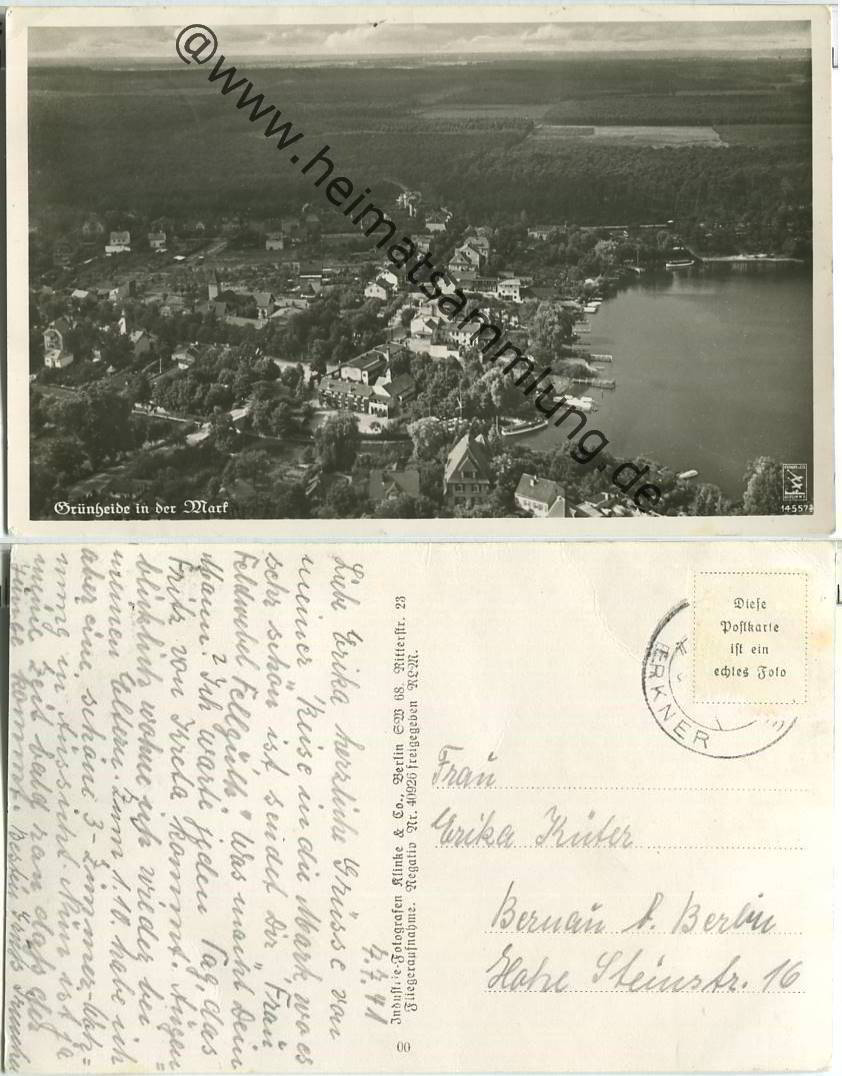 @www.heimatsammlung.de
Grünheide in der Mark
14557
Diese
Postkarte
ist ein
echtes Foto
ERKNER
Frau
Erika Küter
Bernau b. Berlin
Hohe Steinstr. 16
Industrie-Fotografen Klinke & Co., Berlin SW 68. Ritterstr. 23
Fliegeraufnahme. Negativ Nr. 40926 freigegeben RLM.
00
4.7.41
Liebe Erika herzliche Grüsse von
meiner Reise in die Mark, wo es
sehr schön ist sendet Dir „Frau
Feldwebel Fellgüth." Was macht Dein
Mann? Ich warte jeden Tag, das
Fritz von Kreta kommt. Augen=
blicklich wohne ich wieder bei
meinen Eltern. Zum 1.10. habe ich
aber eine schöne 3-Zimmer-Woh=
nung in Aussicht. Nun ist ja
meine Zeit bald ran daß der
kommt.